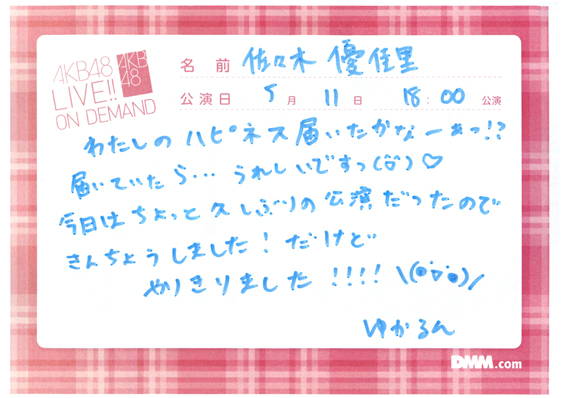 AKB48
LIVE!!
ON DEMAND
AKB
48
名前 佐々木 優佳里
公演日 5月 11日 18:00 公演
わたしのハピネス届いたかなーぁっ!?
届いていたら…うれしいですっ(ö)♡
今日はちょっと久しぶりの公演だったので
きんちょうしました!だけど
やりきりました!!!!\(◉▽◉)/
ゆかるん
DMM.com